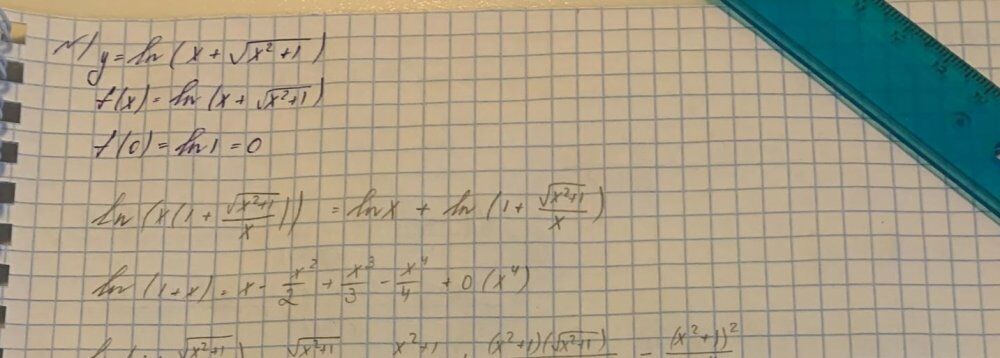 №1 y = ln (x + √(x²+1))
f(x) = ln (x + √(x²+1))
f(0) = ln 1 = 0
ln (x(1 + √(x²+1)/x)) = ln x + ln (1 + √(x²+1)/x)
ln (1+x) = x - x²/2 + x³/3 - x⁴/4 + 0 (x⁴)
√(x²+1) √(x²+1) x²+1 (x²+1)(√(x²+1)) - (x²+1)²